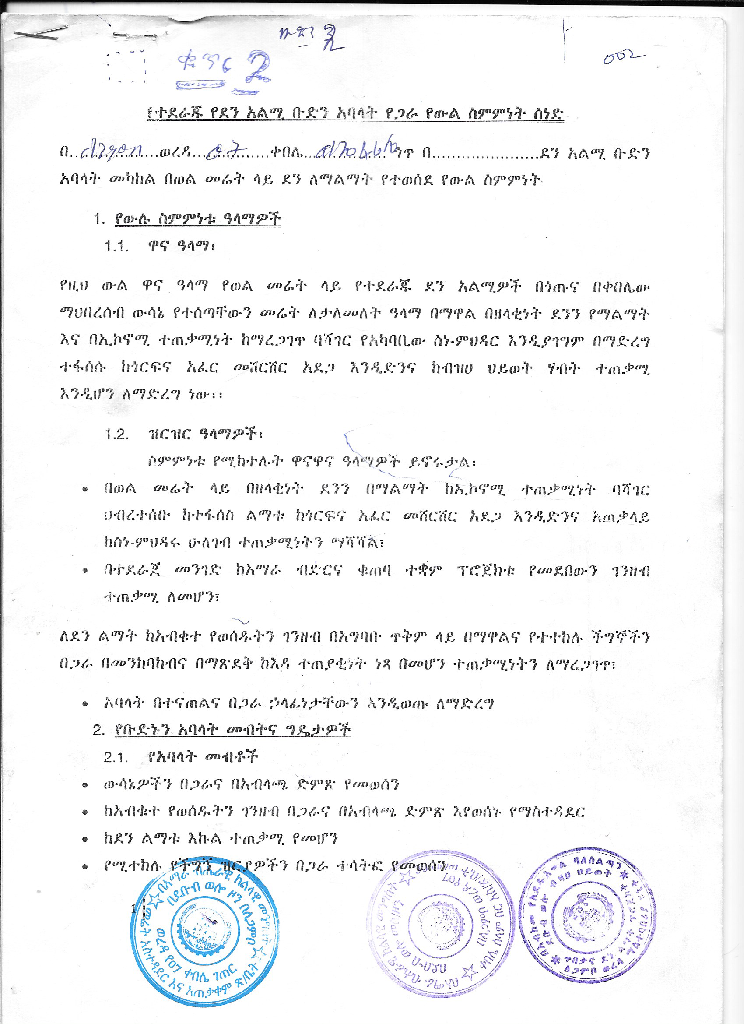 ቁጥር 2
002
የተደራጁ የደን አልሚ ቡድን አባላት የጋራ የውል ስምምነት ሰነድ
በ...ወረዳ...07...ቀበሌ...ጎጥ በ......................ደን አልሚ ቡድን
አባላት መካከል በወል መሬት ላይ ደን ለማልማት የተወሰደ የውል ስምምነት
1. የውሉ ስምምነቱ ዓላማዎች
1.1. ዋና ዓላማ፡
የዚህ ውል ዋና ዓላማ የወል መሬት ላይ የተደራጁ ደን አልሚዎች በጎጡና በቀበሌው
ማህበረሰብ ውሳኔ የተሰጣቸውን መሬት ለታለመለት ዓላማ በማዋል በዘላቂነት ደንን የማልማት
እና በኢኮኖሚ ተጠቃሚነት ከማረጋገጥ ባሻገር የአካባቢው ስነ-ምህዳር እንዲያገግም በማድረግ
ተፋሰሱ ከጎርፍና አፈር መሸርሸር አደጋ እንዲድንና ከብዝሀ ህይወት ሃብት ተጠቃሚ
እንዲሆን ለማድረግ ነው፡፡
1.2. ዝርዝር ዓላማዎች፡
ስምምነቱ የሚከተሉት ዋናዋና ዓላማዎች ይኖሩታል፡
• በወል መሬት ላይ በዘላቂነት ደንን በማልማት ከኢኮኖሚ ተጠቃሚነት ባሻገር
ህብረተሰቡ ከተፋሰስ ልማቱ ከጎርፍና አፈር መሸርሸር አደጋ እንዲድንና አጠቃላይ
ከስነ-ምህዳሩ ሁለገብ ተጠቃሚነትን ማሻሻል፣
• በተደራጀ መንገድ ከአማራ ብድርና ቁጠባ ተቋም ፕሮጀክቱ የመደበውን ገንዘብ
ተጠቃሚ ለመሆን፣
ለደን ልማት ከአብቁተ የወሰዱትን ገንዘብ በአግባቡ ጥቅም ላይ በማዋልና የተተከሉ ችግኞችን
በጋራ በመንከባከብና በማጽደቅ ከእዳ ተጠያቂነት ነጻ በመሆን ተጠቃሚነትን ለማረጋገጥ፣
• አባላት በተናጠልና በጋራ ኃላፊነታቸውን እንዲወጡ ለማድረግ
2. የቡድኑን አባላት መብትና ግዴታዎች
2.1. የአባላት መብቶች
• ውሳኔዎችን በጋራና በአብላጫ ድምጽ የመወሰን
• ከአብቁተ የወሰዱትን ገንዘብ በጋራና በአብላጫ ድምጽ እየወሰኑ የማስተዳደር
• ከደን ልማቱ እኩል ተጠቃሚ የመሆን
• የሚተከሉ የችግኝ ዝርያዎችን በጋራ ተሳትፎ የመወሰን